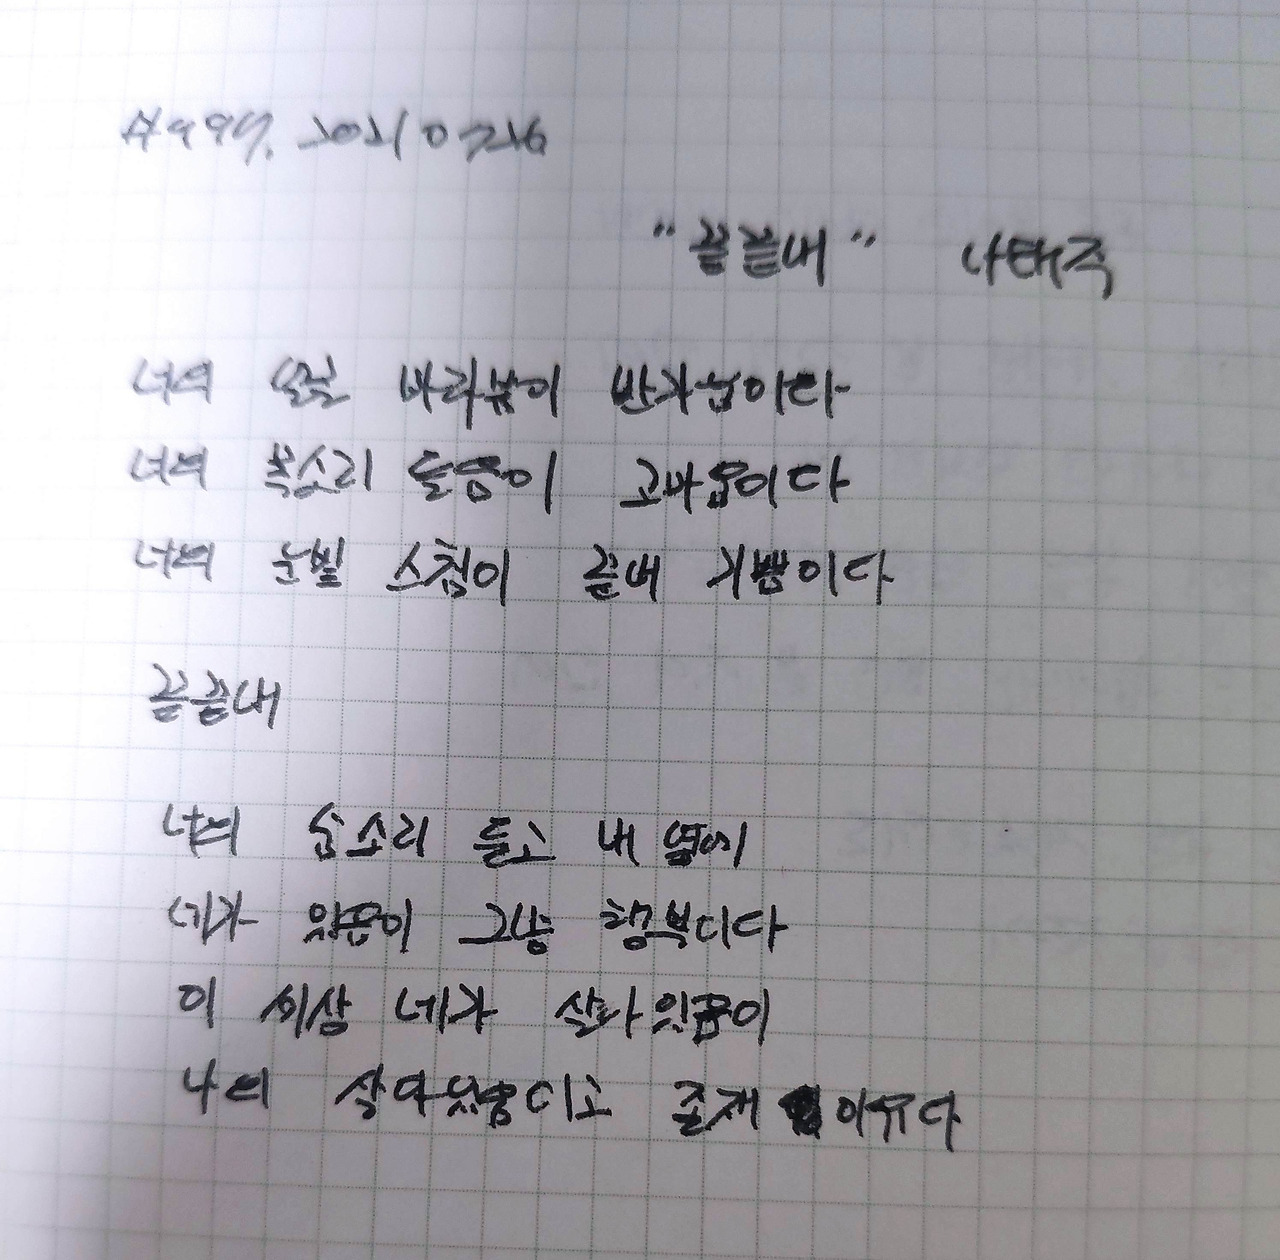 20210726
"끝끝내" 나태주
너의 얼굴 바라봄이 반가움이다
너의 목소리 들음이 고마움이다
너의 눈빛 스침이 끝내 기쁨이다
끝끝내
너의 숨소리 듣고 내 옆에
네가 있음이 그냥 행복이다
이 세상 네가 살아있음이
나의 살아있음이고 존재 이유다